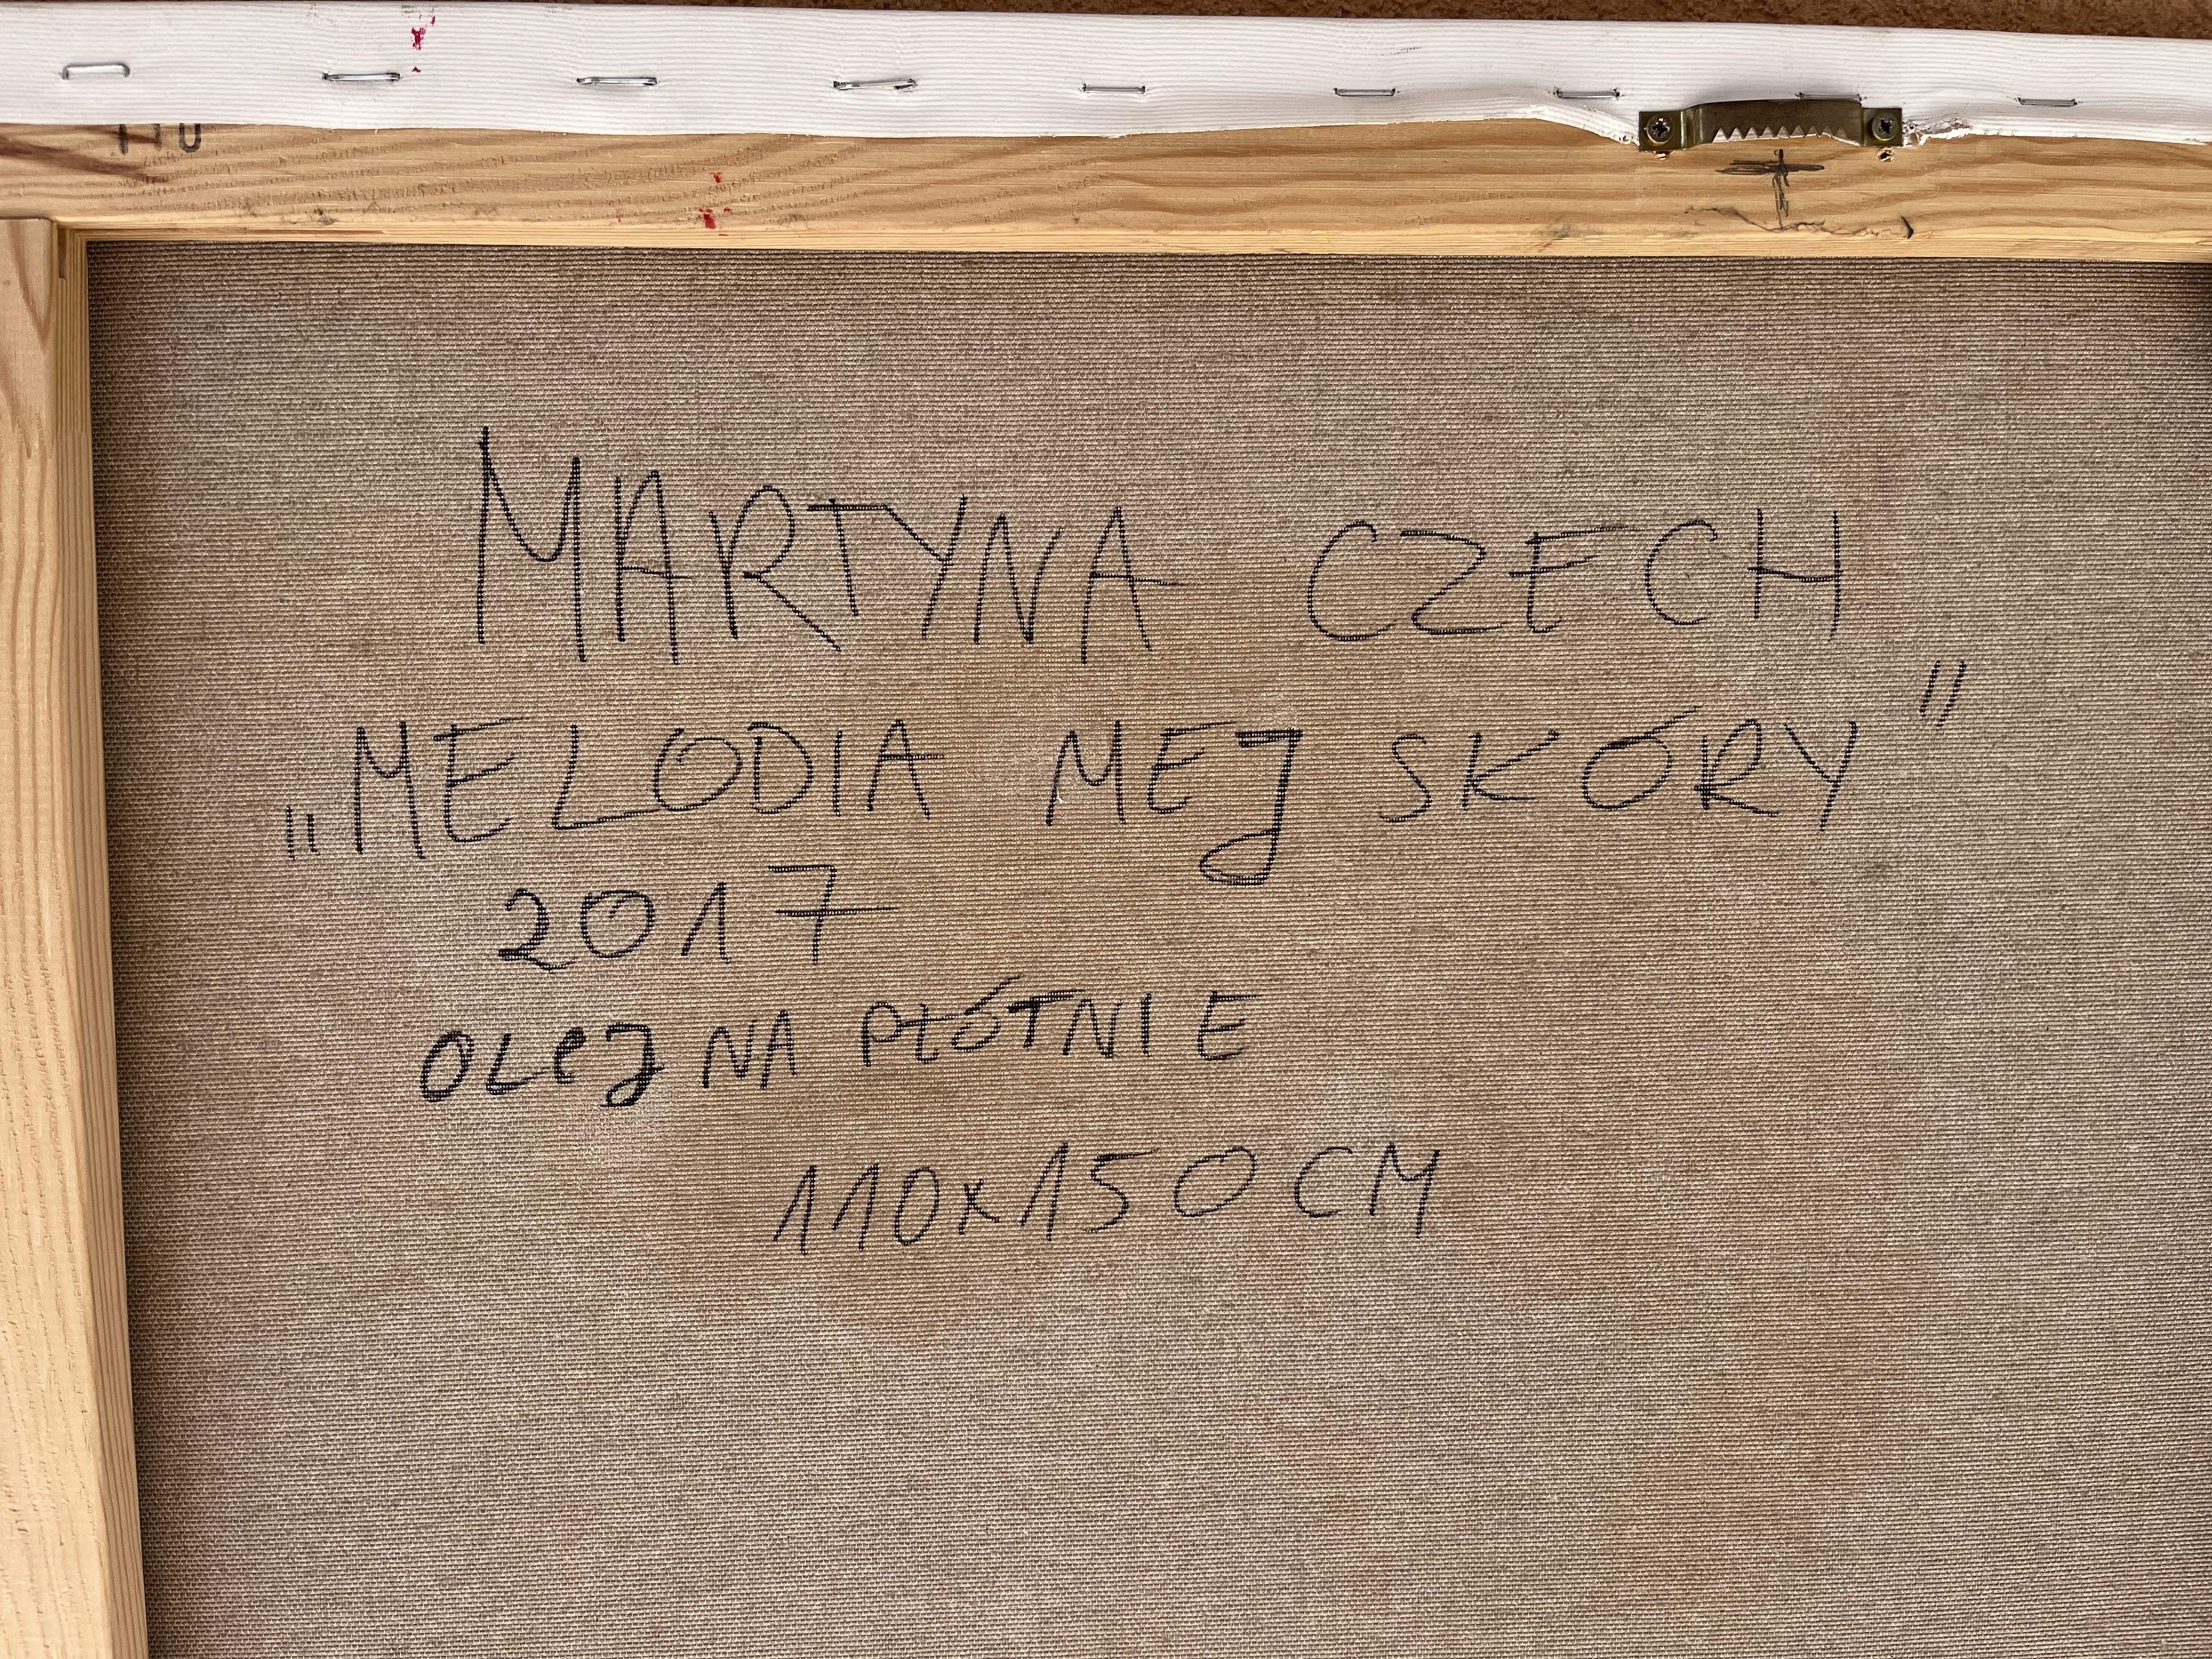 110
MARTYNA CZECH
„MELODIA MEJ SKÓRY"
2017
OLEJ NA PŁÓTNIE
110x150 CM